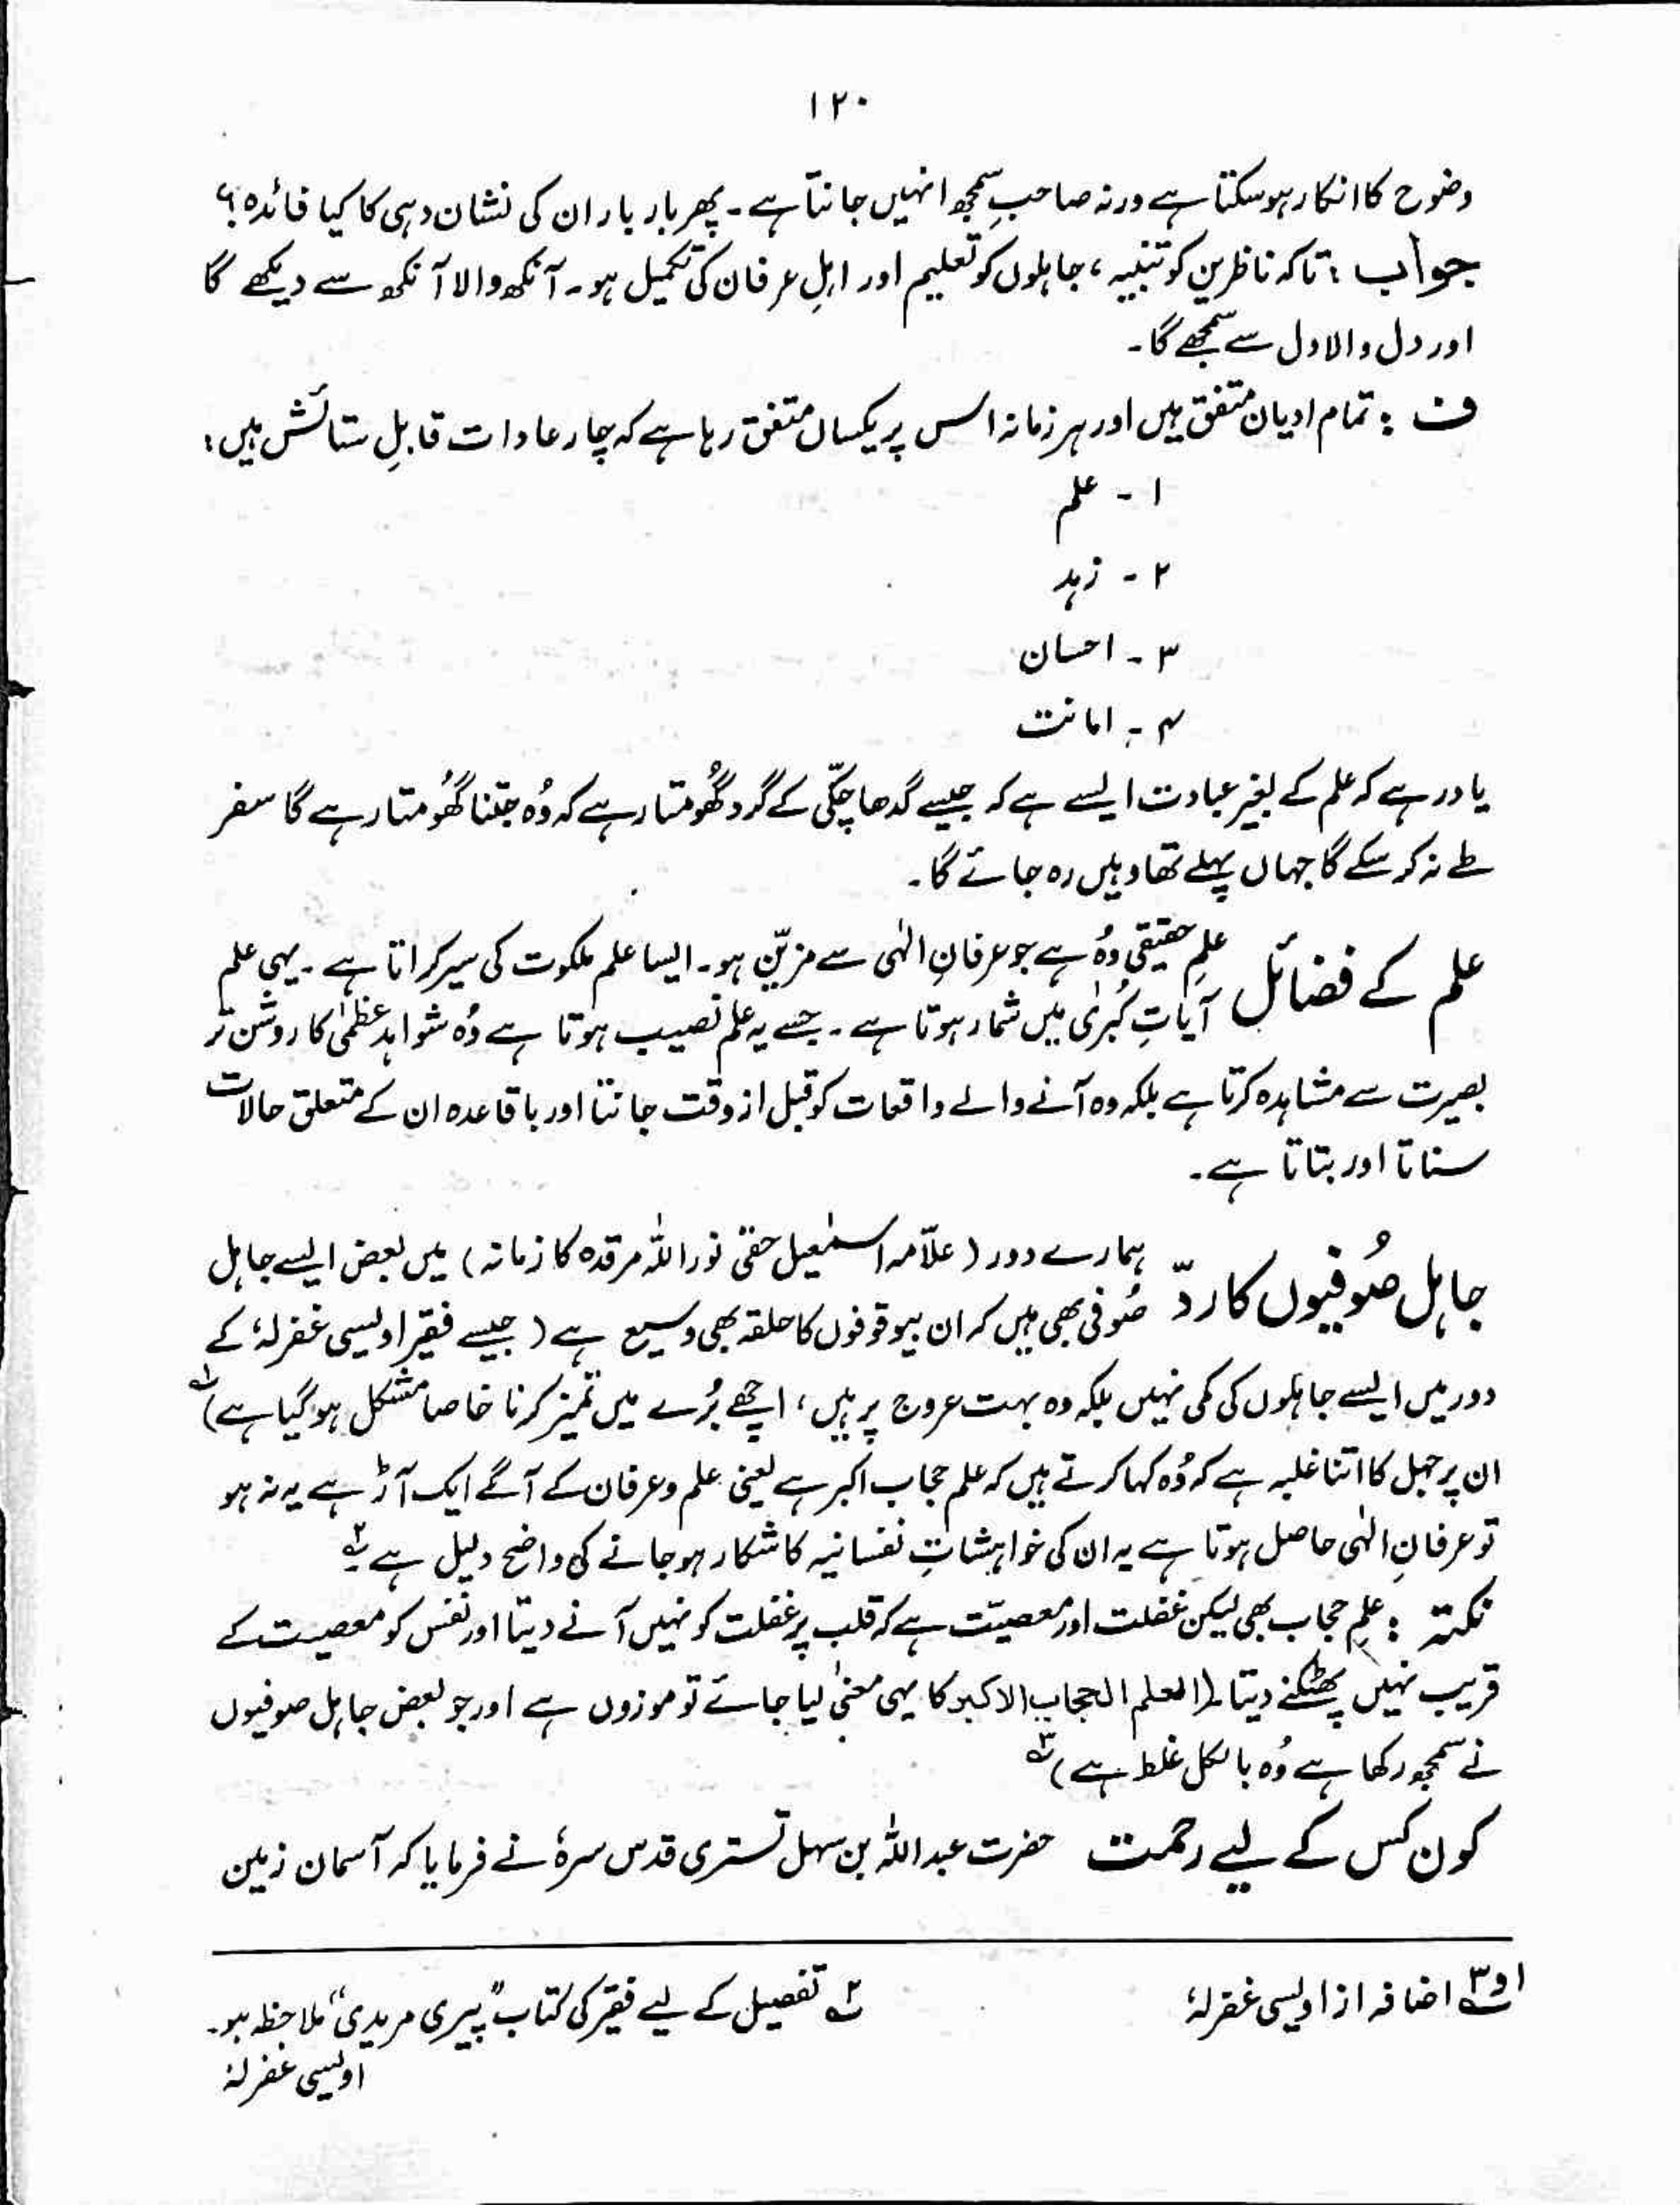 ۱۲۰
وضوح کا انکار ہو سکتا ہے ورنہ صاحبِ سمجھ انہیں جانتا ہے۔ پھر بار بار ان کی نشان دہی کا کیا فائدہ؟
جواب : تاکہ ناظرین کو تنبیہ ، جاہلوں کو تعلیم اور اہلِ عرفان کی تکمیل ہو۔ آنکھ والا آنکھ سے دیکھے گا
اور دل والا دل سے سمجھے گا۔
ف : تمام ادیان متفق ہیں اور ہر زمانہ اس پر یکساں متفق رہا ہے کہ چار عادات قابلِ ستائش ہیں :
۱ ۔ علم
۲ ۔ زہد
۳ ۔ احسان
۴ ۔ امانت
یاد رہے کہ علم کے بغیر عبادت ایسے ہے کہ جیسے گدھا چکّی کے گرد گھُومتا رہے کہ وُہ جتنا گھُومتا رہے گا سفر
طے نہ کر سکے گا جہاں پہلے تھا وہیں رہ جائے گا۔
علم کے فضائل علمِ حقیقی وُہ ہے جو عرفانِ الٰہی سے مزیّن ہو۔ ایسا علم ملکوت کی سیر کراتا ہے ۔ یہی علم
آیاتِ کُبریٰ میں شمار ہوتا ہے ۔ جسے یہ علم نصیب ہوتا ہے وُہ شواہدِ عظمٰی کا روشن تر
بصیرت سے مشاہدہ کرتا ہے بلکہ وہ آنے والے واقعات کو قبل از وقت جانتا اور باقاعدہ ان کے متعلق حالات
سناتا اور بتاتا ہے۔
جاہل صُوفیوں کا ردّ ہمارے دور ( علّامہ اسمٰعیل حقی نور اللّٰہ مرقدہ کا زمانہ ) میں بعض ایسے جاہل
صُوفی بھی ہیں کہ ان بیوقوفوں کا حلقہ بھی وسیع ہے ( جیسے فقیر اویسی غفرلہٗ کے
دور میں ایسے جاہلوں کی کمی نہیں بلکہ وہ بہت عروج پر ہیں ، اچھے بُرے میں تمیز کرنا خاصا مشکل ہو گیا ہے) ۱؎
ان پر جہل کا اتنا غلبہ ہے کہ وُہ کہا کرتے ہیں کہ علم حجاب اکبر ہے یعنی علم و عرفان کے آگے ایک آڑ ہے یہ نہ ہو
تو عرفانِ الٰہی حاصل ہوتا ہے یہ ان کی خواہشاتِ نفسانیہ کا شکار ہو جانے کی واضح دلیل ہے ۲؎
نکتہ : علم حجاب بھی لیکن غفلت اور معصیّت ہے کہ قلب پر غفلت کو نہیں آنے دیتا اور نفس کو معصیت کے
قریب نہیں پھٹکنے دیتا ۔ ( العلم الحجاب الاکبر کا یہی معنیٰ لیا جائے تو موزوں ہے اور جو بعض جاہل صوفیوں
نے سمجھ رکھا ہے وُہ بالکل غلط ہے ) ۳؎
کون کس کے لیے رحمت حضرت عبداللّٰہ بن سہل تستری قدس سرہٗ نے فرمایا کہ آسمان زمین
۱ و ۳؎ اضافہ از اویسی غفرلہٗ
۲؎ تفصیل کے لیے فقیر کی کتاب "پیری مریدی" ملاحظہ ہو۔
اویسی غفرلہٗ